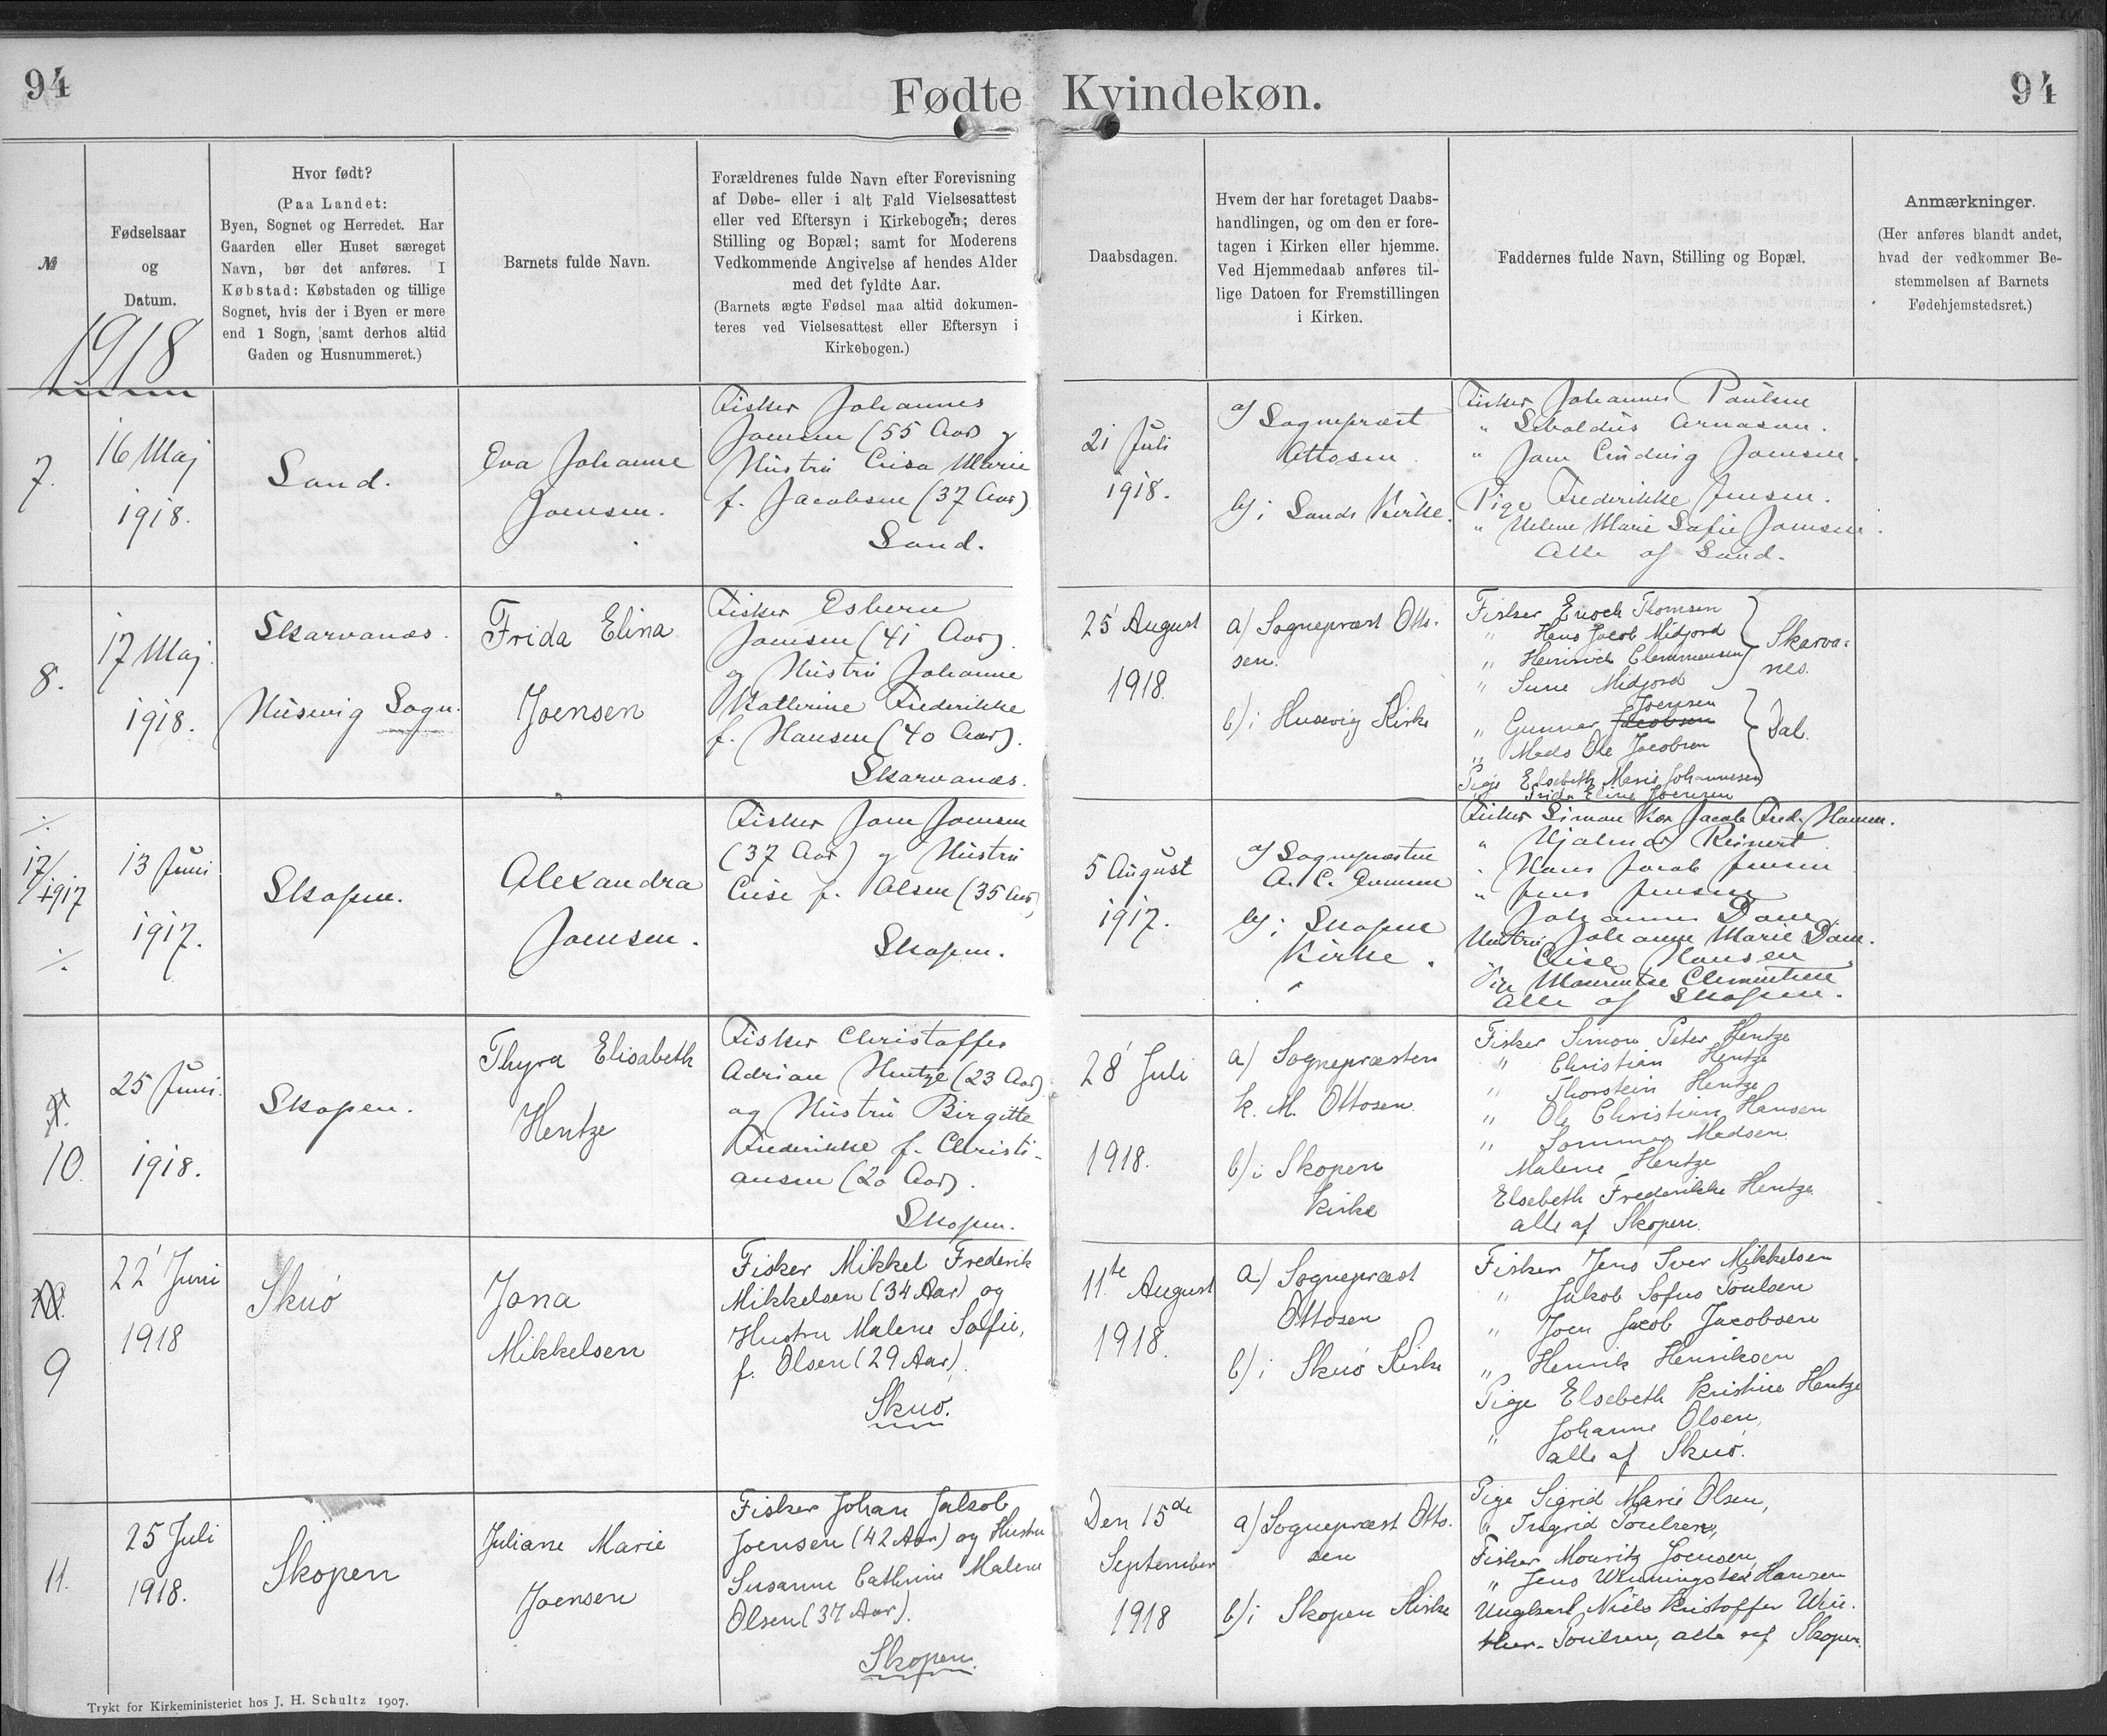 94
Fødte Kvindekøn.
94
№
Fødselsaar
og
Datum.
1918
Hvor født?
(Paa Landet:
Byen, Sognet og Herredet. Har
Gaarden eller Huset særeget
Navn, bør det anføres. I
Købstad: Købstaden og tillige
Sognet, hvis der i Byen er mere
end 1 Sogn, samt derhos altid
Gaden og Husnummeret.)
Barnets fulde Navn.
Forældrenes fulde Navn efter Forevisning
af Døbe- eller i alt Fald Vielsesattest
eller ved Eftersyn i Kirkebogen; deres
Stilling og Bopæl; samt for Moderens
Vedkommende Angivelse af hendes Alder
med det fyldte Aar.
(Barnets ægte Fødsel maa altid dokumen-
teres ved Vielsesattest eller Eftersyn i
Kirkebogen.)
Daabsdagen.
Hvem der har foretaget Daabs-
handlingen, og om den er fore-
tagen i Kirken eller hjemme.
Ved Hjemmedaab anføres til-
lige Datoen for Fremstillingen
i Kirken.
Faddernes fulde Navn, Stilling og Bopæl.
Anmærkninger.
(Her anføres blandt andet,
hvad der vedkommer Be-
stemmelsen af Barnets
Fødehjemstedsret.)
7.
16 Maj
1918.
Sand.
Eva Johanne
Joensen.
Fisker Johannes
Joensen (55 Aar) og
Hustru Lisa Marie
f. Jacobsen (37 Aar)
Sand.
21 Juli
1918.
a) Sognepræst
Ottosen
b) i Sands Kirke.
Fisker Johannes Paulsen
" Sibaldus Arnason.
" Joen Ludvig Joensen.
Pige Frederikke Jensen.
" Helene Marie Sofie Joensen.
Alle af Sand.
8.
17 Maj
1918.
Skarvanæs.
Húsevig Sogn.
Frida Elina
Joensen
Fisker Esbern
Joensen (41 Aar).
og Hustru Johanne
Katherine Frederikke
f. Hansen (40 Aar).
Skarvanæs.
25' August
1918.
a) Sognepræst Otto-
sen.
b) i Husevig Kirke
Fisker Enoch Thomsen
" Hans Jacob Midjord
" Heinrich Clemmensen
" Sune Midjord
Skarva-
nes.
Joensen
" Gunnar Jacobsen
" Mads Ole Jacobsen
Dal.
Pige Elsebeth Marie Johannesen
Frida Elina Joensen
17/1917
13 Juni
1917.
Skopen.
Alexandra
Joensen.
Fisker Joen Joensen
(37 Aar) og Hustru
Lise f. Olsen (35 Aar)
Skopen.
5 August
1917.
a) Sognepræsten
A. C.
b) i Skopen
Kirke.
Fisker Simon Jacob Fred. Hansen.
" Hjalmar Reinert
" Hans Jacob Jensen
" Jens Jensen
Johannes Dam
Hustru Johanne Marie Dam.
Lise Hansen
Pige Clementsen
Alle af Skopen.
9.
10.
25 Juni.
1918.
Skopen.
Thyra Elisabeth
Hentze
Fisker Christoffer
Adrian Hentze (23 Aar)
og Hustru Birgitte
Frederikke f. Christi-
ansen (20 Aar).
Skopen.
28' Juli
1918.
a) Sognepræsten
K. M. Ottosen
b) i Skopen
Kirke
Fisker Simon Peter Hentze
" Christian Hentze
" Thorstein Hentze
" Ole Christian Hansen
" Sommer Madsen
Malene Hentze
Elsebeth Frederikke Hentze
alle af Skopen.
10.
9
22' Juni
1918
Skuø
Jona
Mikkelsen
Fisker Mikkel Frederik
Mikkelsen (34 Aar) og
Hustru Malene Sofie,
f. Olsen (29 Aar).
Skuø.
11te August
1918.
a) Sognepræst
Ottosen
b) i Skuø Kirke
Fisker Jens Iver Mikkelsen
" Jakob Sofus Poulsen
" Joen Jacob Jacobsen
" Henrik Henriksen
Pige Elsebeth Kristine Hentze
" Johanne Olsen,
alle af Skuø.
11.
25 Juli
1918.
Skopen
Juliane Marie
Joensen
Fisker Johan Jakob
Joensen (42 Aar) og Hustru
Susanne Cathrine Malene
Olsen (37 Aar).
Skopen.
Den 15de
September
1918
a) Sognepræst Otto-
sen
b) i Skopen Kirke
Pige Sigrid Marie Olsen,
" Ingrid Poulsen,
Fisker Mouritz Joensen,
" Jens Winningsted Hansen
Ungkarl Niels Kristoffer Win-
ther-Poulsen, alle af Skopen.
Trykt for Kirkeministeriet hos J. H. Schultz 1907.